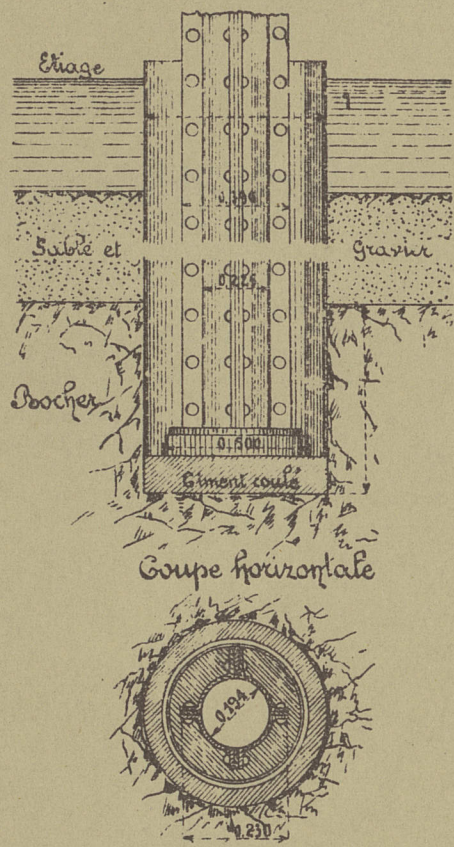 Etiage
0.394
Sable et
Gravier
0.225
Rocher
0.600
Ciment coulé
Coupe horizontale
0.194
0.230